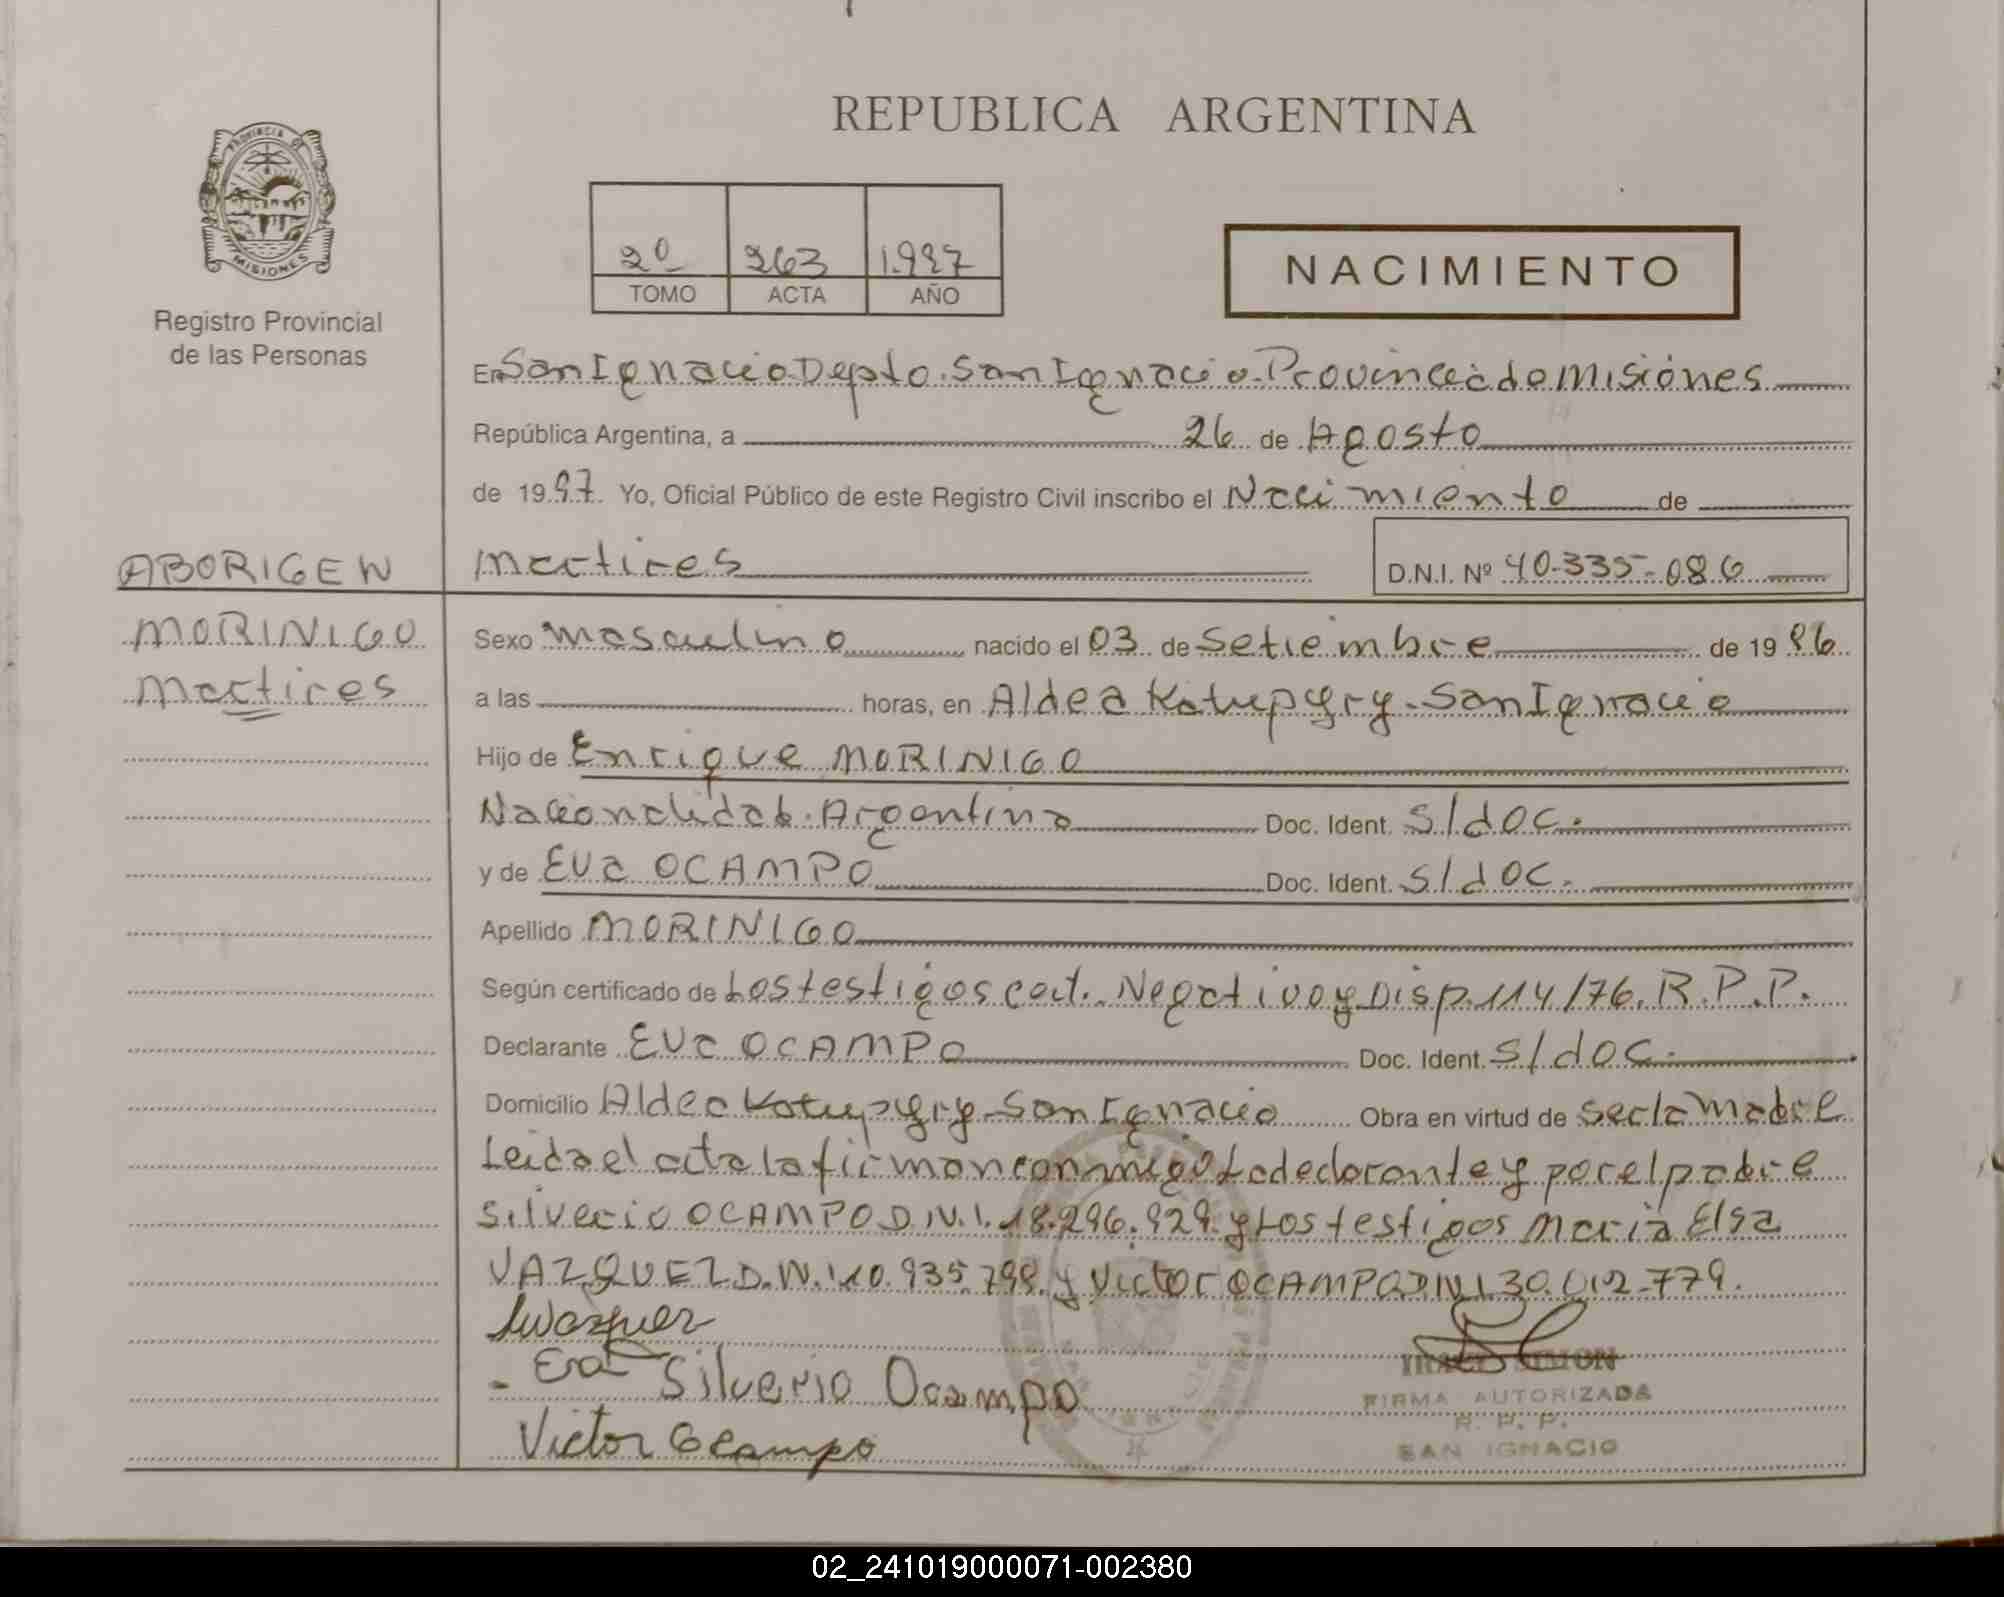 REPUBLICA ARGENTINA
PROVINCIA DE
MISIONES
Registro Provincial
de las Personas
2º 263 1.997
TOMO ACTA AÑO
NACIMIENTO
En San Ignacio Depto. San Ignacio. Provincia de Misiones
República Argentina, a 26 de Agosto
de 19 97. Yo, Oficial Público de este Registro Civil inscribo el Nacimiento de
ABORIGEN
Martires D.N.I. Nº 40.335.086
MORINIGO
Martires
Sexo masculino nacido el 03 de Setiembre de 19 96
a las horas, en Aldea Katupyry - San Ignacio
Hijo de Enrique MORINIGO
Nacionalidad. Argentina Doc. Ident. S/doc.
y de Eva OCAMPO Doc. Ident. S/doc.
Apellido MORINIGO
Según certificado de Los testigos cert. Negativo y Disp. 114/76. R.P.P.
Declarante Eva OCAMPO Doc. Ident. S/doc.
Domicilio Aldea Katupyry - San Ignacio Obra en virtud de ser la madre
Leida el acta la firman conmigo La declarante y por el padre
Silverio OCAMPO D.N.I. 18.296.929. y Los testigos Maria Elsa
VAZQUEZ D.N.I 10.935.798. y Victor OCAMPO DNI 30.012.779.
Eva Silverio Ocampo
Victor Ocampo
SIMON
FIRMA AUTORIZADA
R. P. P.
SAN IGNACIO
02_241019000071-002380